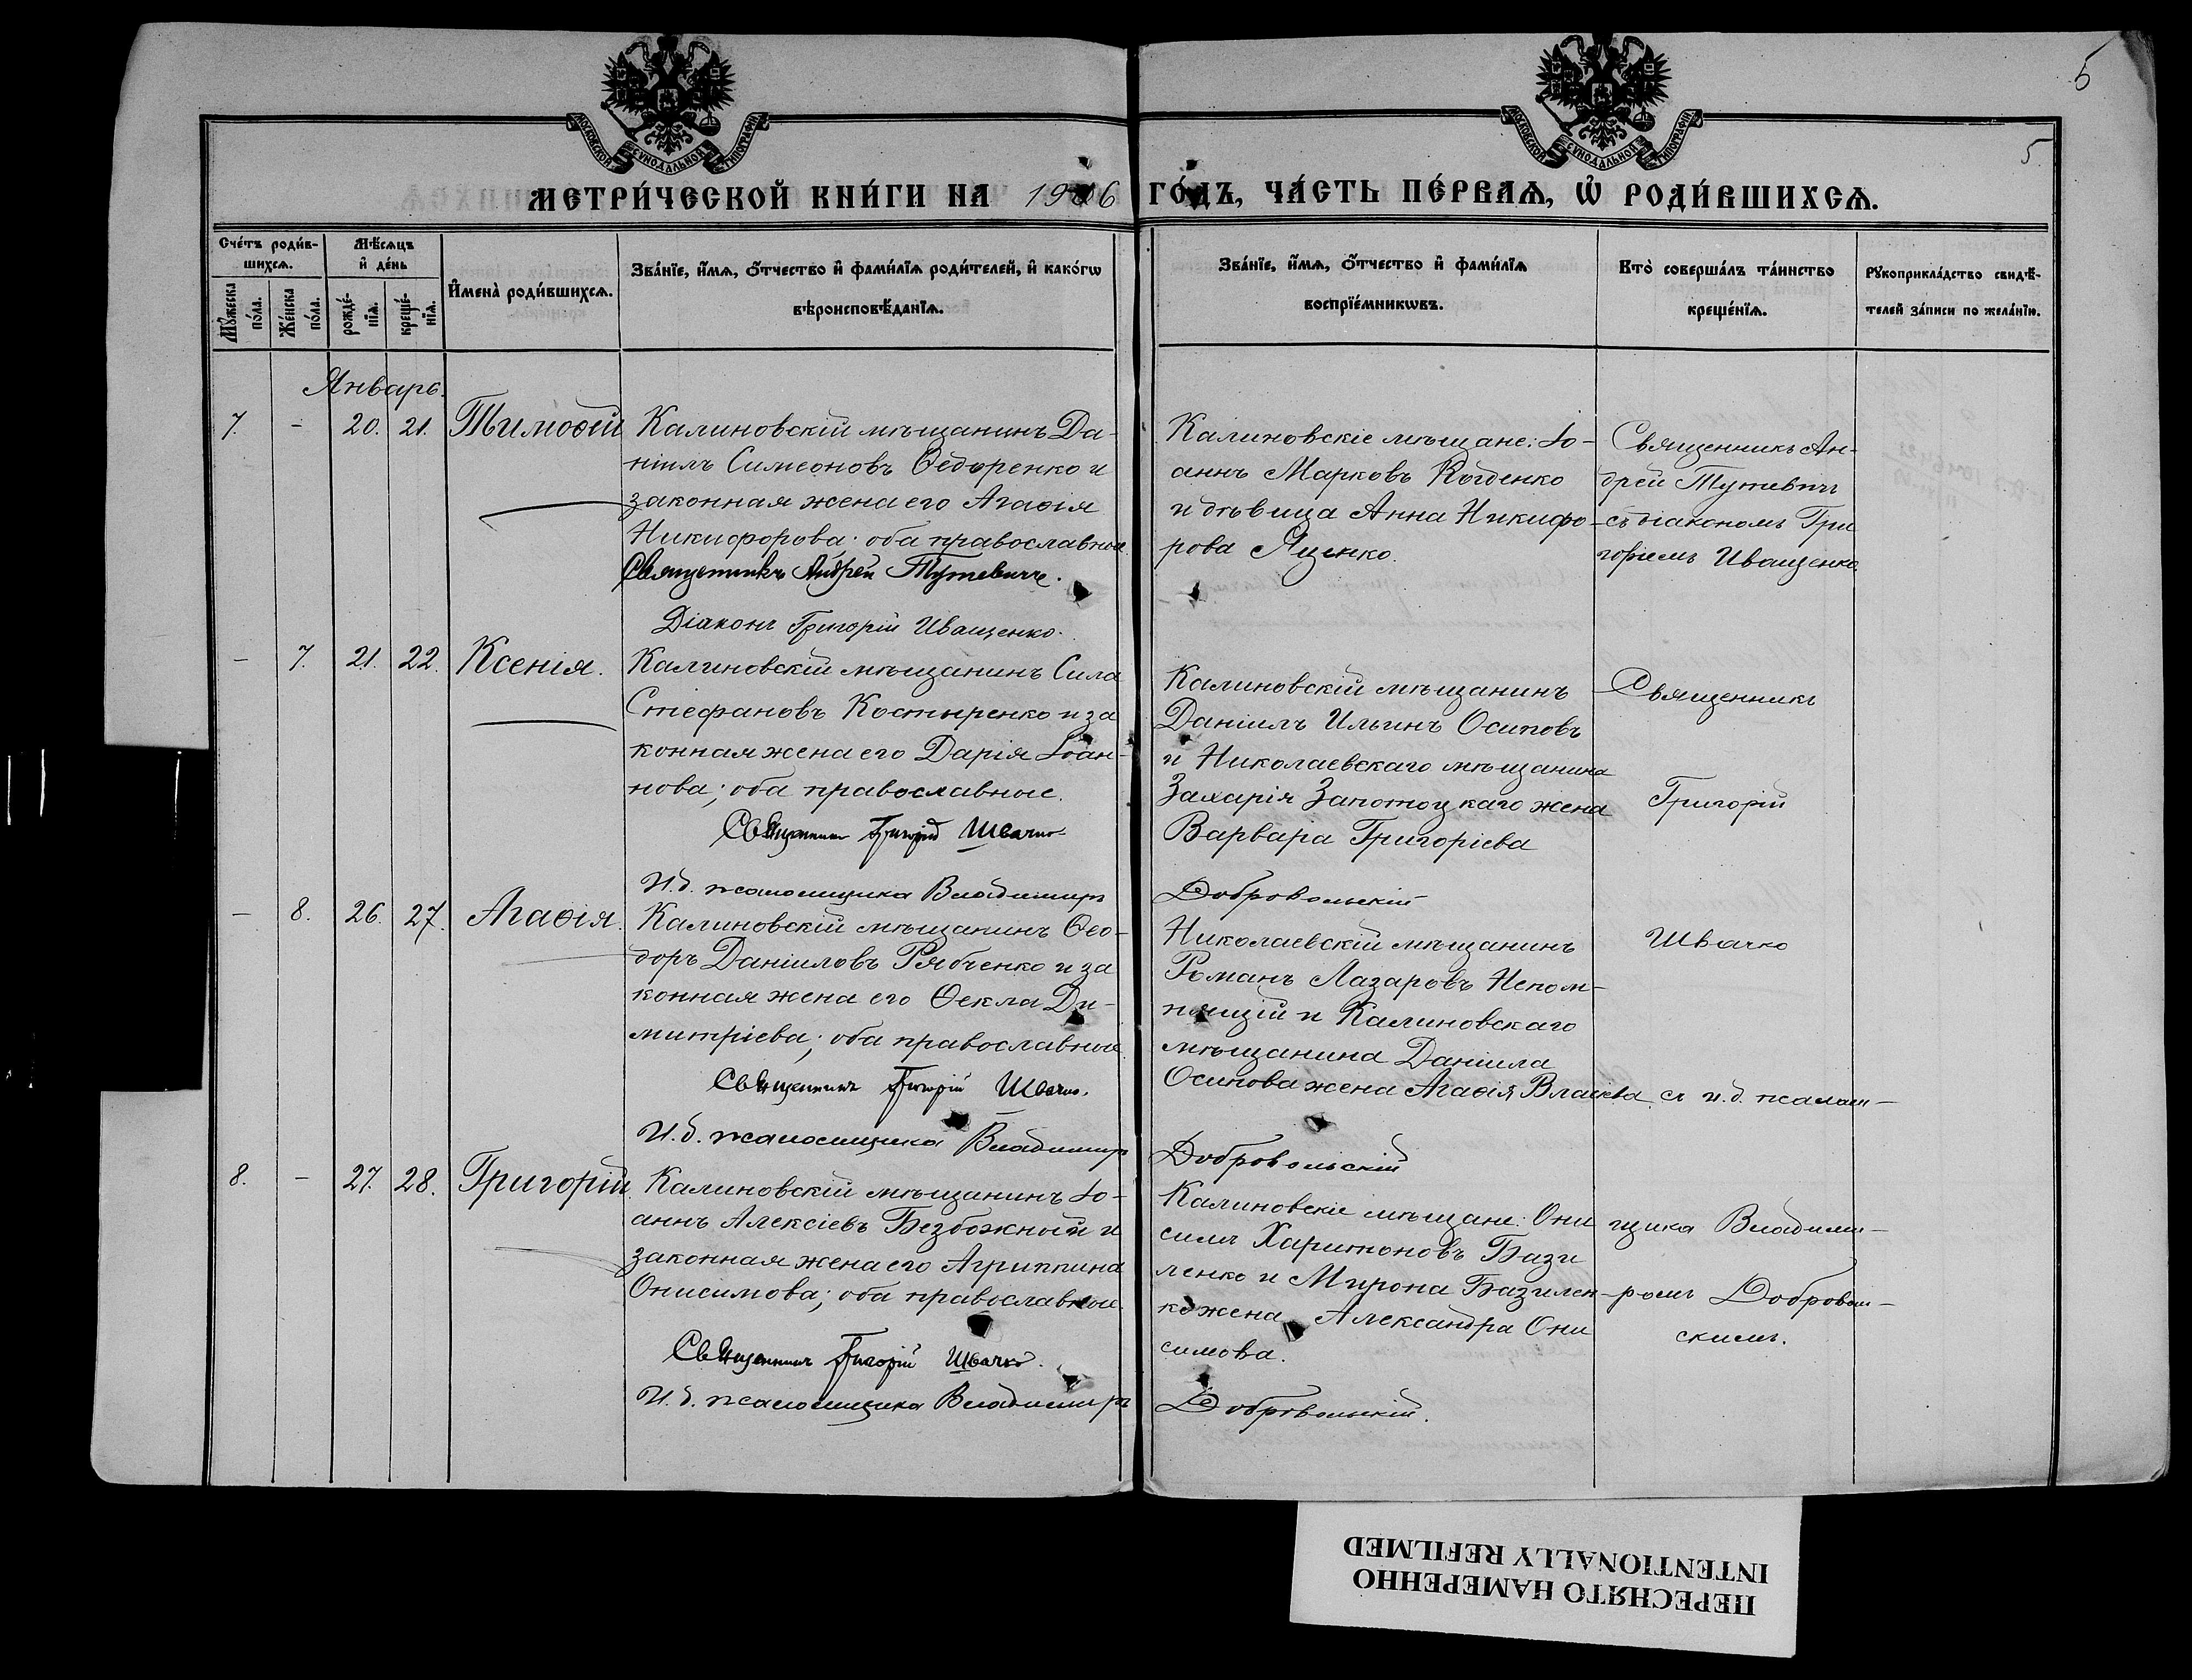 5
5
МОСКОВСКОЙ СѴНОДАЛЬНОЙ ТИПОГРАФІИ
МОСКОВСКОЙ СѴНОДАЛЬНОЙ ТИПОГРАФІИ
МЕТРИ́ЧЕСКОЙ КНИ́ГИ НА 1906 ГО́ДЪ, ЧА́СТЬ ПЕ́РВАѦ, Ѡ҆ РОДИ́ВШИХСѦ.
Сче́тъ роди́в-
шихсѧ.
Мꙋ́жеска
по́ла.
Же́нска
по́ла.
Мѣ́сѧцъ
и҆ де́нь
рожде́-
нїѧ.
креще́-
нїѧ.
И҆мена̀ роди́вшихсѧ.
Зва́нїе, и҆́мѧ, ѻ҆́тчество и҆ фами́лїѧ роди́телей, и҆ како́гѡ
вѣроисповѣ́данїѧ.
Зва́нїе, и҆́мѧ, ѻ҆́тчество и҆ фами́лїѧ
воспрїе́мникѡвъ.
Кто̀ соверша́лъ та́инство
креще́нїѧ.
Рꙋкоприкла́дство свидѣ́-
телей за́писи по жела́нїю.
Январь.
7. - 20. 21. Тимоѳей
Калиновскій мѣщанинъ Да-
ніилъ Симеоновъ Ѳедоренко и
законная жена его Агаѳія
Никифорова: оба православные
Священникъ Андрей Тутевичъ.
Діаконъ Григорій Иващенко.
Калиновскіе мѣщане: Іо-
аннъ Марковъ
и дѣвица Анна Никифо-
рова Яценко.
Священникъ Ан-
дрей Тутевичъ
съ діакономъ Гри
горіемъ Иващенко
- 7. 21. 22. Ксенія.
Калиновскій мѣщанинъ Сила
Стефановъ Костыренко и за
конная жена его Дарія Іоан-
нова; оба православные.
Священникъ Григорій Швачко
И. д. псаломщика Владимиръ Добровольскій
Калиновскій мѣщанинъ
Даніилъ Ильинъ Осиповъ
и Николаевскаго мѣщанина
Захарія Запотоцкаго жена
Варвара Григоріева
Священникъ
Григорій
- 8. 26. 27. Агаѳія.
Калиновскій мѣщанинъ Ѳео-
доръ Даніиловъ Рябченко и за
конная жена его Ѳекла Ди-
митріева; оба православные.
Священникъ Григорій Швачко.
И. д. псаломщика Владимиръ Добровольскій
Николаевскій мѣщанинъ
Романъ Лазаровъ Непом-
нящій и Калиновскаго
мѣщанина Даніила
Осипова жена Агаѳія Власіева
Швачко
съ и. д. псалом-
8. - 27. 28. Григорій.
Калиновскій мѣщанинъ Іо-
аннъ Алексіевъ Безбожный и
законная жена его Агриппина
Онисимова; оба православные.
Священникъ Григорій Швачко.
И. д. псаломщика Владимиръ Добровольскій.
Калиновскіе мѣщане: Они
симъ Харитоновъ Бази
ленко и Мирона Базилен-
ко жена Александра Они
симова.
щика Владими-
ромъ Доброволь-
скимъ.
ПЕРЕСНЯТО НАМЕРЕННО
INTENTIONALLY REFILMED